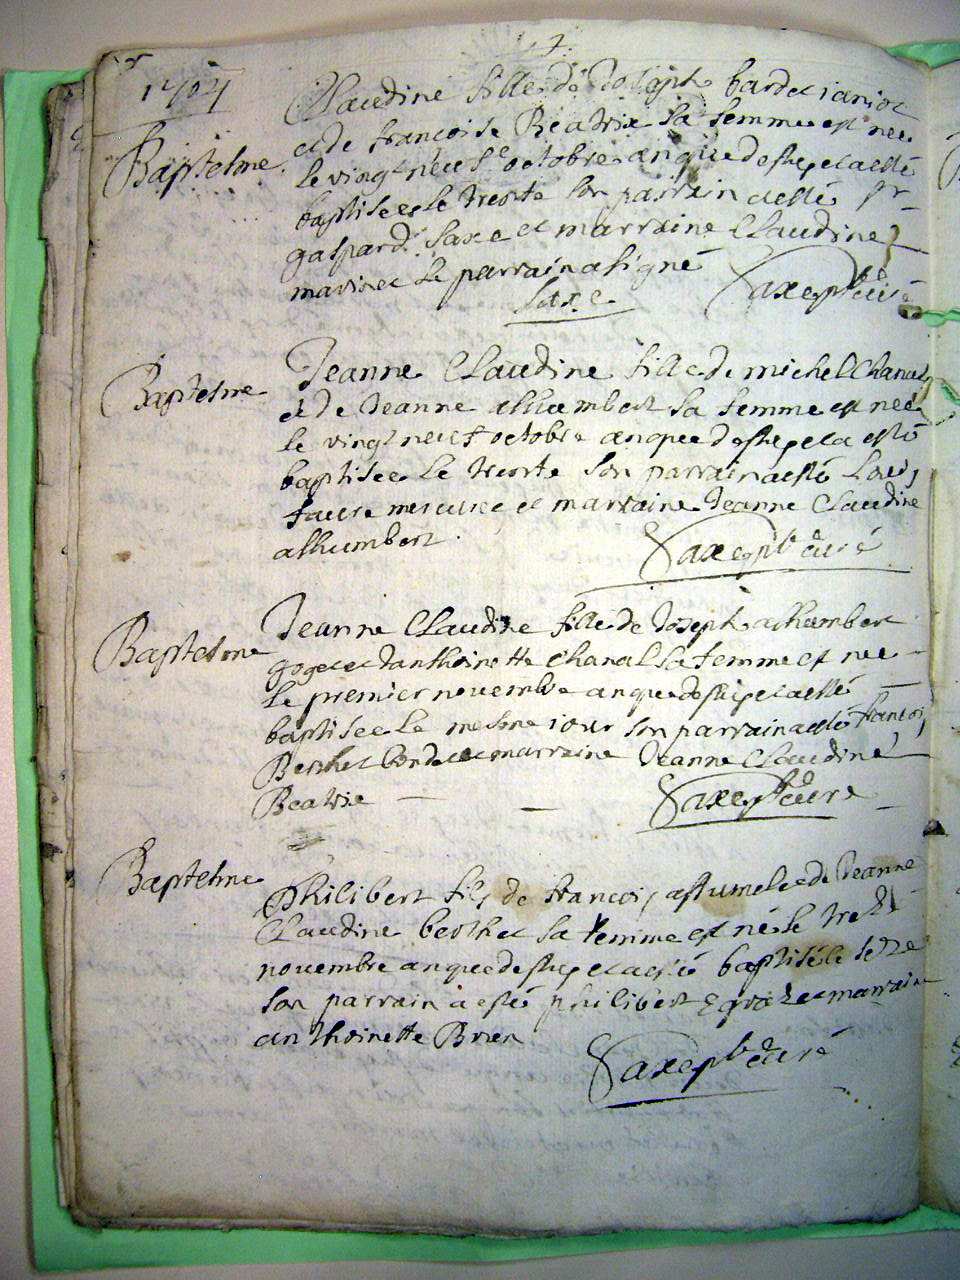 1704
Claudine fille de Joseph bardet
Baptesme
et de francoise Beatrix sa femme est nee
le vingt neuf octobre an que dessus et a esté
baptisee le trente son parrain a esté sr
gaspard Saxe et marraine Claudine
marinet le parrain a signé
Saxe
Saxe pbr curé
Baptesme
Jeanne Claudine fille de michel Chanal
et de Jeanne alhumbert sa femme est nee
le vingt neuf octobre an que dessus et a esté
baptisee le trente son parrain a esté Louis
faure mercier et marraine Jeanne Claudine
alhumbert.
Saxe pbr curé
Baptesme
Jeanne Claudine fille de Joseph alhumbert
goget et danthoinette Chanal sa femme est nee
le premier novembre an que dessus et a esté
baptisee le mesme iour son parrain a esté francois
Berthet et marraine Jeanne Claudine
Beatrix
Saxe pbr curé
Baptesme
Philibert fils de francois et de Jeanne
Claudine berthet sa femme est né le treze
novembre an que dessus et a esté baptisé le seze
son parrain a esté philibert et marraine
anthoinette Brun
Saxe pbr curé